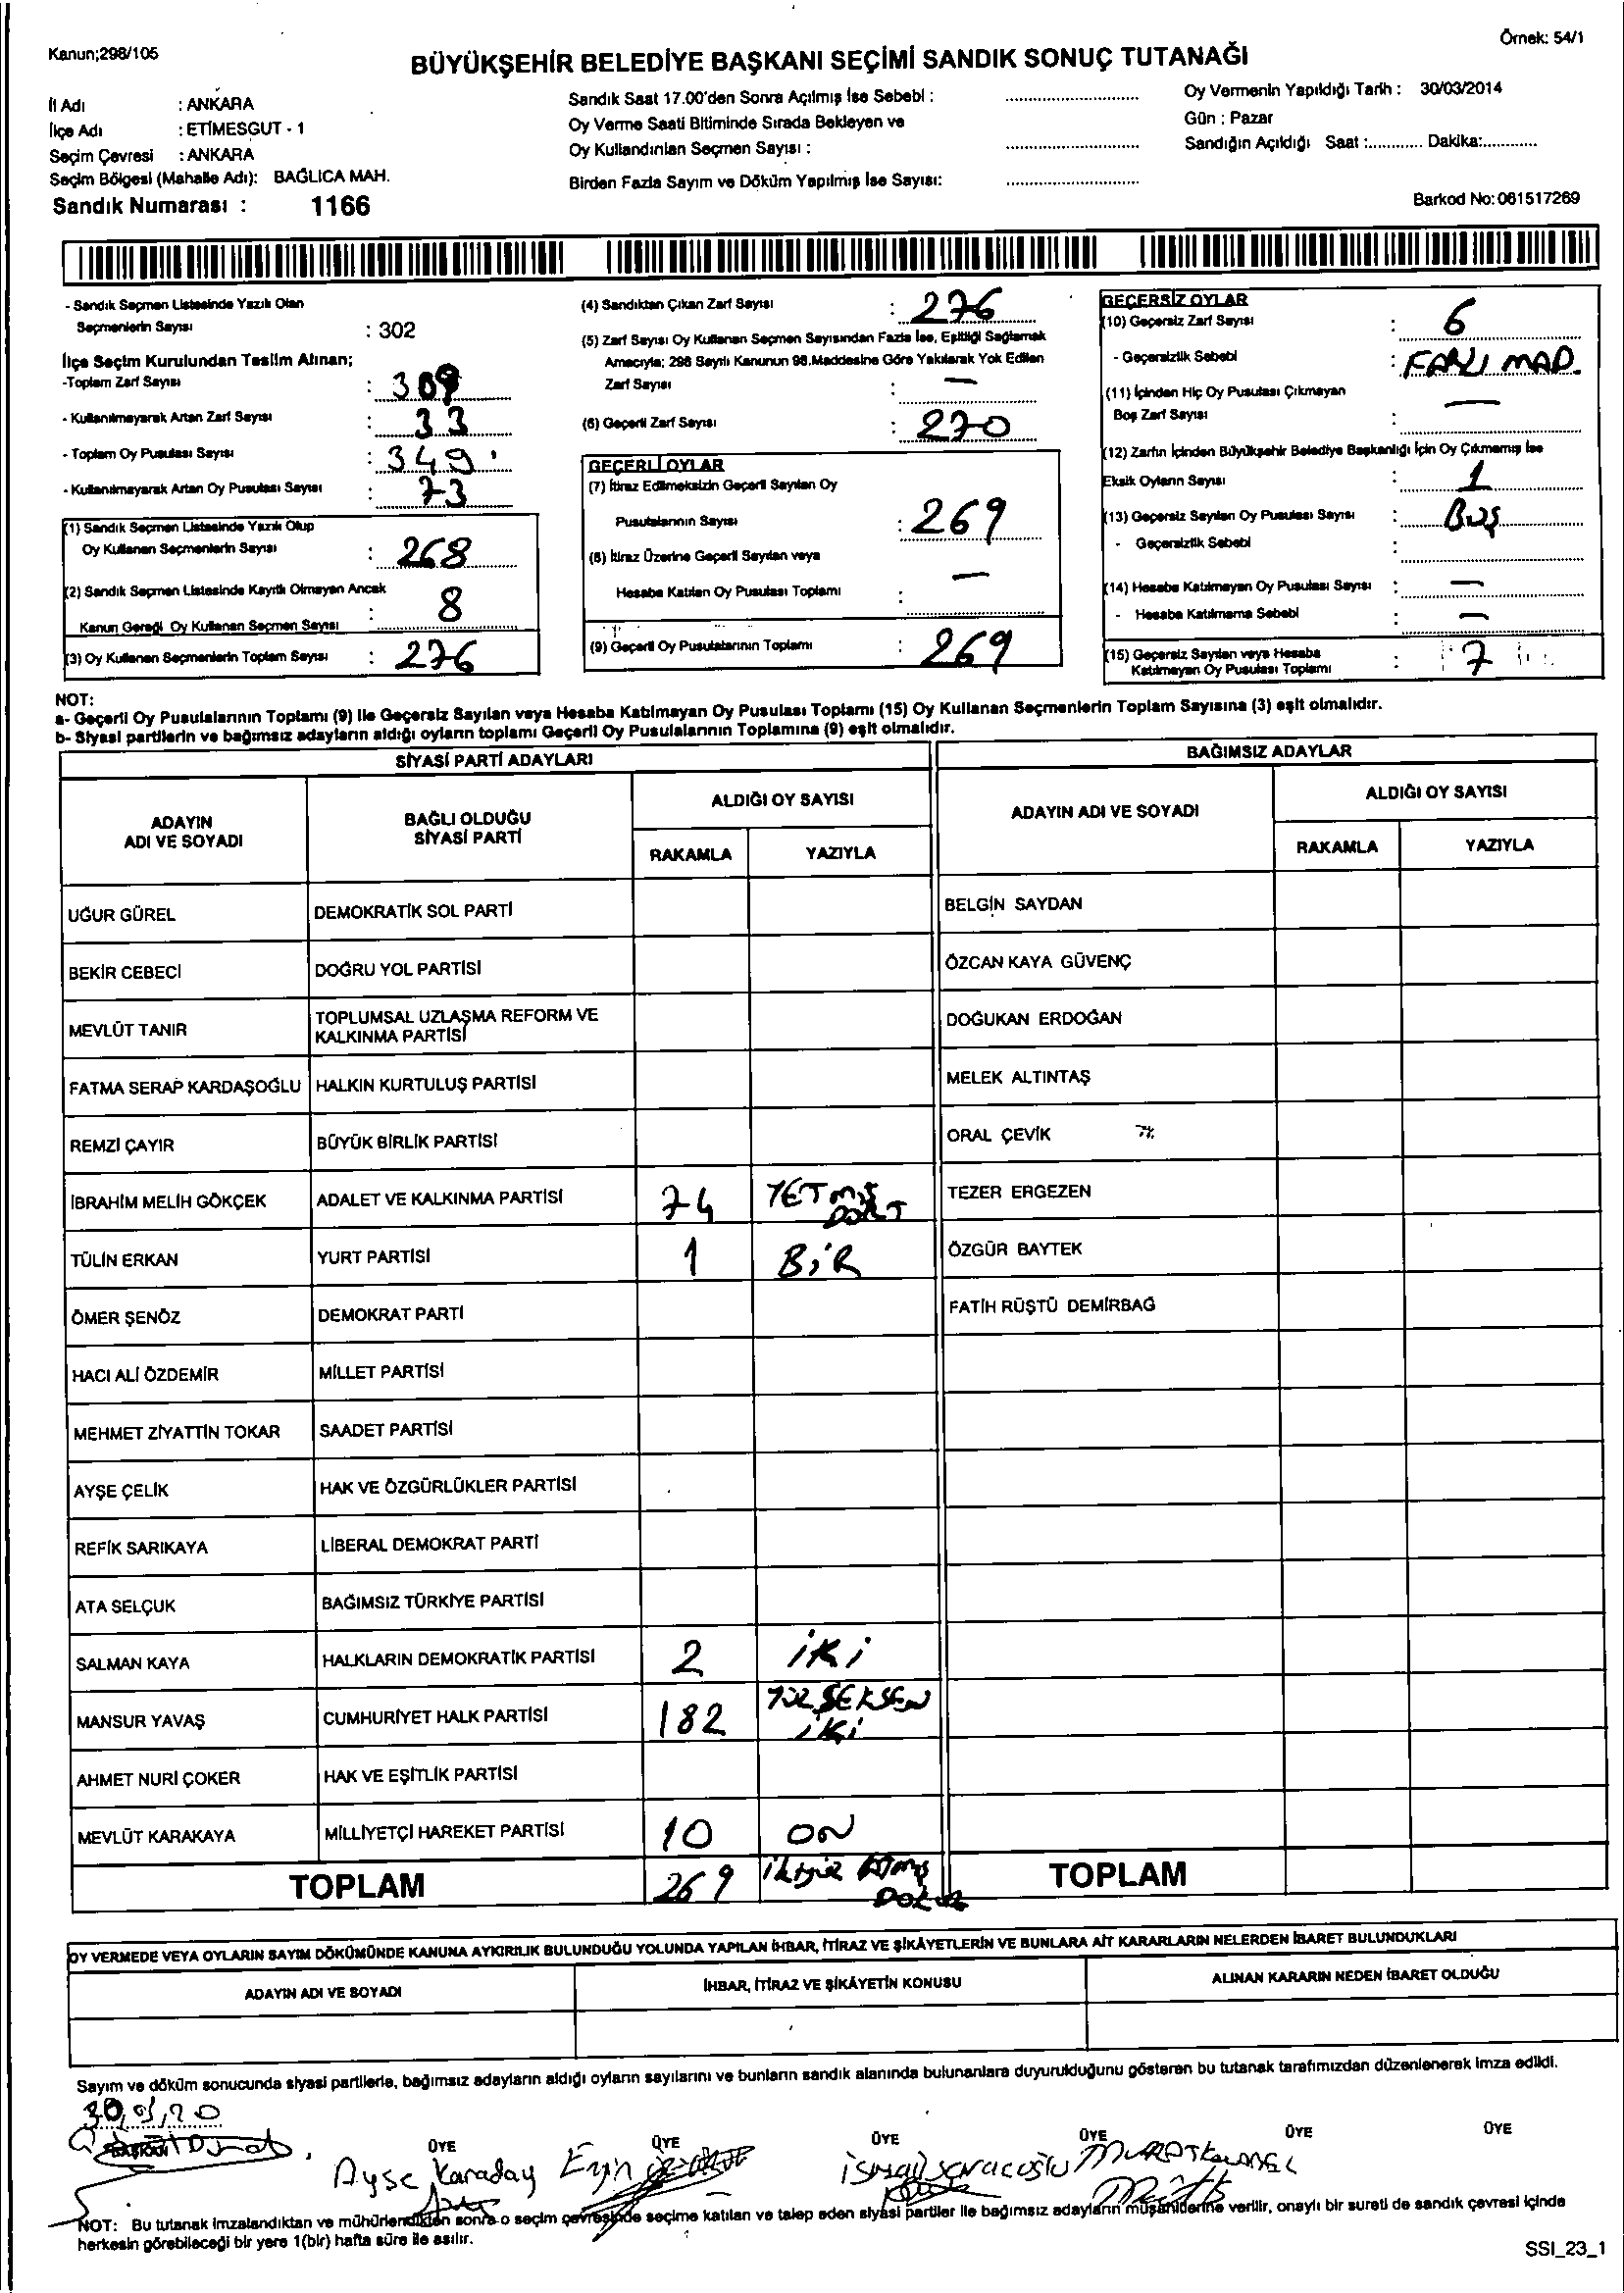 Kanun;298/105
Örnek: 54/1
BÜYÜKŞEHİR BELEDİYE BAŞKANI SEÇİMİ SANDIK SONUÇ TUTANAĞI
İl Adı : ANKARA
İlçe Adı : ETİMESGUT - 1
Seçim Çevresi : ANKARA
Seçim Bölgesi (Mahalle Adı): BAĞLICA MAH.
Sandık Numarası : 1166
Sandık Saat 17.00'den Sonra Açılmış İse Sebebi :
Oy Verme Saati Bitiminde Sırada Bekleyen ve
Oy Kullandırılan Seçmen Sayısı :
Birden Fazla Sayım ve Döküm Yapılmış İse Sayısı:
Oy Vermenin Yapıldığı Tarih : 30/03/2014
Gün : Pazar
Sandığın Açıldığı Saat :............ Dakika:............
Barkod No: 061517269
- Sandık Seçmen Listesinde Yazılı Olan
Seçmenlerin Sayısı : 302
İlçe Seçim Kurulundan Teslim Alınan;
-Toplam Zarf Sayısı : 309
- Kullanılmayarak Artan Zarf Sayısı : 33
- Toplam Oy Pusulası Sayısı : 349
- Kullanılmayarak Artan Oy Pusulası Sayısı : 73
(1) Sandık Seçmen Listesinde Yazılı Olup
Oy Kullanan Seçmenlerin Sayısı : 268
(2) Sandık Seçmen Listesinde Kayıtlı Olmayan Ancak
Kanun Gereği Oy Kullanan Seçmen Sayısı : 8
(3) Oy Kullanan Seçmenlerin Toplam Sayısı : 276
(4) Sandıktan Çıkan Zarf Sayısı : 276
(5) Zarf Sayısı Oy Kullanan Seçmen Sayısından Fazla İse, Eşitliği Sağlamak
Amacıyla; 298 Sayılı Kanunun 98.Maddesine Göre Yakılarak Yok Edilen
Zarf Sayısı : —
(6) Geçerli Zarf Sayısı : 270
GEÇERLİ OYLAR
(7) İtiraz Edilmeksizin Geçerli Sayılan Oy
Pusulalarının Sayısı : 269
(8) İtiraz Üzerine Geçerli Sayılan veya
Hesaba Katılan Oy Pusulası Toplamı : —
(9) Geçerli Oy Pusulalarının Toplamı : 269
GEÇERSİZ OYLAR
(10) Geçersiz Zarf Sayısı : 6
- Geçersizlik Sebebi : FARLI MAD.
(11) İçinden Hiç Oy Pusulası Çıkmayan
Boş Zarf Sayısı : —
(12) Zarfın İçinden Büyükşehir Belediye Başkanlığı İçin Oy Çıkmamış İse
Eksik Oyların Sayısı : 1
(13) Geçersiz Sayılan Oy Pusulası Sayısı : Boş
- Geçersizlik Sebebi :
(14) Hesaba Katılmayan Oy Pusulası Sayısı : —
- Hesaba Katılmama Sebebi : —
(15) Geçersiz Sayılan veya Hesaba
Katılmayan Oy Pusulası Toplamı : 7
NOT:
a- Geçerli Oy Pusulalarının Toplamı (9) ile Geçersiz Sayılan veya Hesaba Katılmayan Oy Pusulası Toplamı (15) Oy Kullanan Seçmenlerin Toplam Sayısına (3) eşit olmalıdır.
b- Siyasi partilerin ve bağımsız adayların aldığı oyların toplamı Geçerli Oy Pusulalarının Toplamına (9) eşit olmalıdır.
SİYASİ PARTİ ADAYLARI
BAĞIMSIZ ADAYLAR
ADAYIN ADI VE SOYADI
BAĞLI OLDUĞU SİYASİ PARTİ
ALDIĞI OY SAYISI
RAKAMLA YAZIYLA
ADAYIN ADI VE SOYADI
ALDIĞI OY SAYISI
RAKAMLA YAZIYLA
UĞUR GÜREL DEMOKRATİK SOL PARTİ BELGİN SAYDAN
BEKİR CEBECİ DOĞRU YOL PARTİSİ ÖZCAN KAYA GÜVENÇ
MEVLÜT TANIR TOPLUMSAL UZLAŞMA REFORM VE KALKINMA PARTİSİ DOĞUKAN ERDOĞAN
FATMA SERAP KARDAŞOĞLU HALKIN KURTULUŞ PARTİSİ MELEK ALTINTAŞ
REMZİ ÇAYIR BÜYÜK BİRLİK PARTİSİ ORAL ÇEVİK
İBRAHİM MELİH GÖKÇEK ADALET VE KALKINMA PARTİSİ 74 YETMİŞ DÖRT TEZER ERGEZEN
TÜLİN ERKAN YURT PARTİSİ 1 BİR ÖZGÜR BAYTEK
ÖMER ŞENÖZ DEMOKRAT PARTİ FATİH RÜŞTÜ DEMİRBAĞ
HACI ALİ ÖZDEMİR MİLLET PARTİSİ
MEHMET ZİYATTİN TOKAR SAADET PARTİSİ
AYŞE ÇELİK HAK VE ÖZGÜRLÜKLER PARTİSİ
REFİK SARIKAYA LİBERAL DEMOKRAT PARTİ
ATA SELÇUK BAĞIMSIZ TÜRKİYE PARTİSİ
SALMAN KAYA HALKLARIN DEMOKRATİK PARTİSİ 2 İKİ
MANSUR YAVAŞ CUMHURİYET HALK PARTİSİ 182 YÜZ SEKSEN İKİ
AHMET NURİ ÇOKER HAK VE EŞİTLİK PARTİSİ
MEVLÜT KARAKAYA MİLLİYETÇİ HAREKET PARTİSİ 10 ON
TOPLAM 269 ikiyüz altmış DOKUZ TOPLAM
OY VERMEDE VEYA OYLARIN SAYIM DÖKÜMÜNDE KANUNA AYKIRILIK BULUNDUĞU YOLUNDA YAPILAN İHBAR, İTİRAZ VE ŞİKÂYETLERİN VE BUNLARA AİT KARARLARIN NELERDEN İBARET BULUNDUKLARI
ADAYIN ADI VE SOYADI İHBAR, İTİRAZ VE ŞİKÂYETİN KONUSU ALINAN KARARIN NEDEN İBARET OLDUĞU
Sayım ve döküm sonucunda siyasi partilerle, bağımsız adayların aldığı oyların sayılarını ve bunların sandık alanında bulunanlara duyurulduğunu gösteren bu tutanak tarafımızdan düzenlenerek imza edildi.
BAŞKAN ÜYE ÜYE ÜYE ÜYE ÜYE ÜYE
Ayşe Karaday ismail saracoğlu MURAT
NOT: Bu tutanak imzalandıktan ve mühürlendikten sonra o seçim çevresinde seçime katılan ve talep eden siyasi partiler ile bağımsız adayların müşahitlerine verilir, onaylı bir sureti de sandık çevresi içinde
herkesin görebileceği bir yere 1(bir) hafta süre ile asılır.
SSI_23_1